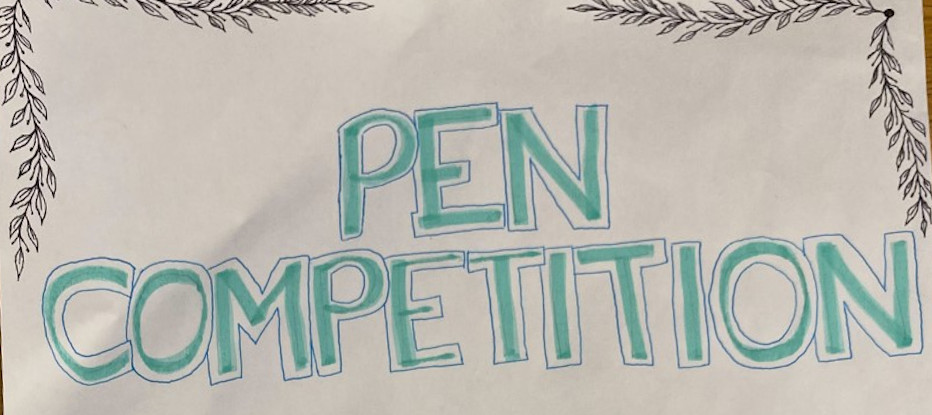 PEN
COMPETITION